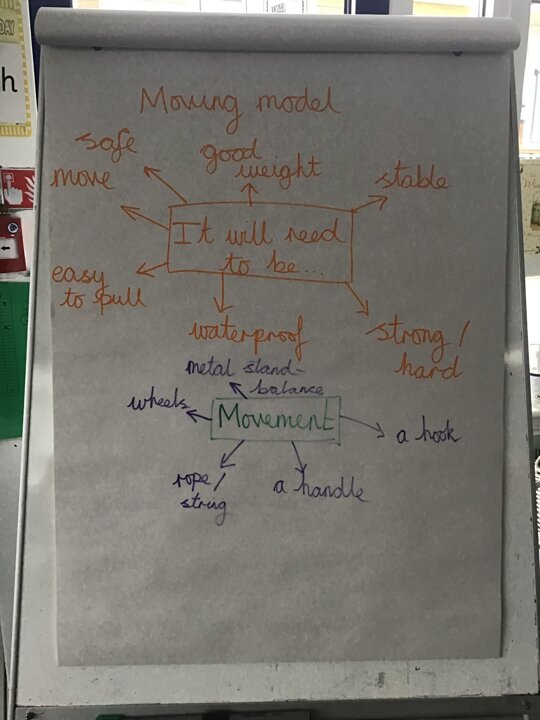 Moving model
safe
good
weight
move
stable
It will need
to be...
easy
to pull
waterproof
strong /
hard
metal stand-
balance
wheels
Movement
a hook
rope/
string
a handle